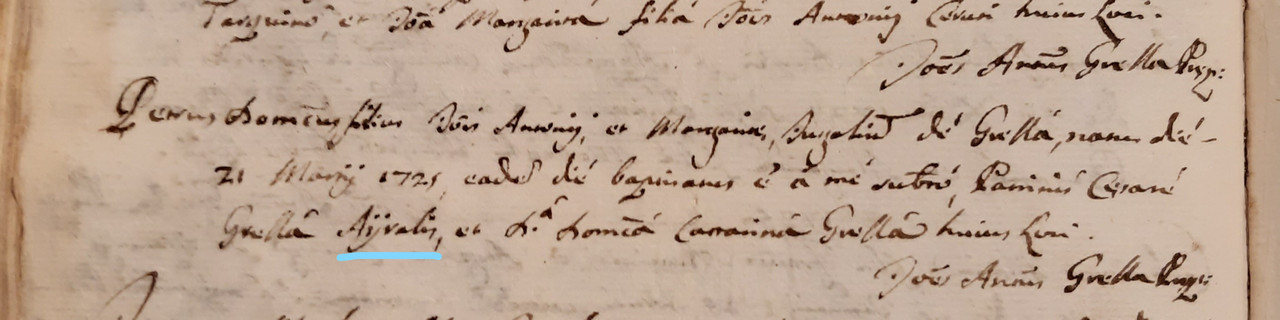 Tarquino et Joã Margarita filia Jõis Antonij Ceruti huius loci.
Joẽs Antñus Grella Prep:
Petrus Domĩcus filius Jõis Antonij, et Margaritę, Jugaliũ de Grella, natus die
21 Martij 1725 eadẽ die baptizatus ẽ à me subtõ, Patrinis Cesare
Grella Ayralis, et D.ª Domĩca Cattarina Grella huius loci.
Joẽs Antñus Grella Prep: